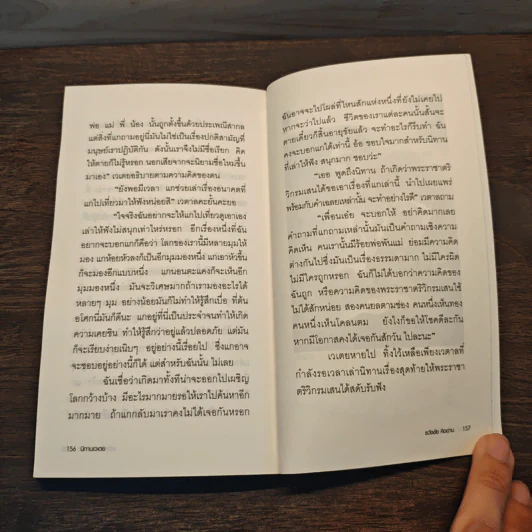 พ่อ แม่ พี่ น้อง นั้นถูกตั้งขึ้นด้วยประเพณีสากล
แต่สิ่งที่แกถามอยู่นี่มันไม่ใช่เป็นเรื่องปกติสามัญที่
มนุษย์เราปฏิบัติกัน ดังนั้นเราจึงไม่มีชื่อเรียก คิด
ให้ตายก็ไม่รู้หรอก นอกเสียจากจะนิยามชื่อใหม่ขึ้น
มาเอง" เวตอธิบายตามความคิดของตน
"ยังพอมีเวลา แกช่วยเล่าเรื่องอนาคตที่
แกไปเที่ยวมาให้ฟังหน่อยสิ" เวตาลคะยั้นคะยอ
"ใจจริงฉันอยากจะให้แกไปเที่ยวดูเอาเอง
เล่าให้ฟังไม่สนุกเท่าไหร่หรอก อีกเรื่องหนึ่งที่ฉัน
อยากจะบอกแกก็คือว่า โลกของเรานี้มีหลายมุมให้
มอง แกห้อยหัวลงก็เป็นอีกมุมมองหนึ่ง แกเอาหัวขึ้น
ก็จะมองอีกแบบหนึ่ง แกนอนตะแคงก็จะเห็นอีก
มุมมองหนึ่ง มันจะวิเศษมากถ้าเรามองอะไรได้
หลายๆ มุม อย่างน้อยมันก็ไม่ทำให้รู้สึกเบื่อ ที่ต้น
อโศกนี่มันก็ดีนะ แกอยู่ที่นี่เป็นประจำจนทำให้เกิด
ความเคยชิน ทำให้รู้สึกว่าอยู่แล้วปลอดภัย แต่มัน
ก็จะเรียบง่ายเงียบๆ อยู่อย่างนี้เรื่อยไป ซึ่งแกอาจ
จะชอบอยู่อย่างนี้ก็ได้ แต่สำหรับฉันนั้น ไม่เลย
ฉันเชื่อว่าเกิดมาทั้งทีน่าจะออกไปเผชิญ
โลกกว้างบ้าง มีอะไรมากมายรอให้เราไปค้นหาอีก
มากมาย ถ้าแกกลับมาเราคงไม่ได้เจอกันหรอก
156 นิทานเวตอ
ฉันอาจจะไปโผล่ที่ไหนสักแห่งหนึ่งที่ยังไม่เคยไป
หากจะว่าไปแล้ว ชีวิตของเราแต่ละคนนั้นสั้นจะ
ตายเดี๋ยวก็สิ้นอายุขัยแล้ว จะทำอะไรก็รีบทำ ฉัน
คงจะบอกแกได้เท่านี้ อ้อ ขอบใจมากสำหรับนิทาน
ที่เล่าให้ฟัง สนุกมาก ชอบว่ะ"
"เออ พูดถึงนิทาน ถ้าเกิดว่าพระราชาตริ
วิกรมเสนได้ขอเอาเรื่องที่แกเล่านี้ นำไปเผยแพร่
พร้อมกับคำเฉลยเหล่านั้น จะทำอย่างไรดี" เวตาลถาม
"เพื่อนเอ๋ย จะบอกให้ อย่าคิดมากเลย
คำถามที่แกถามเหล่านั้นมันเป็นคำถามเชิงความ
คิดเห็น คนเรานั้นมีร้อยพ่อพันแม่ ย่อมมีความคิด
ต่างกันไปซึ่งมันเป็นเรื่องธรรมดามาก ไม่มีใครผิด
ไม่มีใครถูกหรอก ฉันก็ไม่ได้บอกว่าความคิดของ
ฉันถูก หรือความคิดของพระราชาตริวิกรมเสนใช้
ไม่ได้สักหน่อย สองคนยลตามช่อง คนหนึ่งเห็นทอง
คนหนึ่งเห็นโคลนตม ยังไงก็ขอให้โชคดีละกัน
หากมีโอกาสคงได้เจอกันสักวัน ไปละนะ"
เวตอหายไป ทิ้งไว้เหลือเพียงเวตาลที่
กำลังรอเวลาเล่านิทานเรื่องสุดท้ายให้พระราชา
ตริวิกรมเสนได้สดับรับฟัง
157